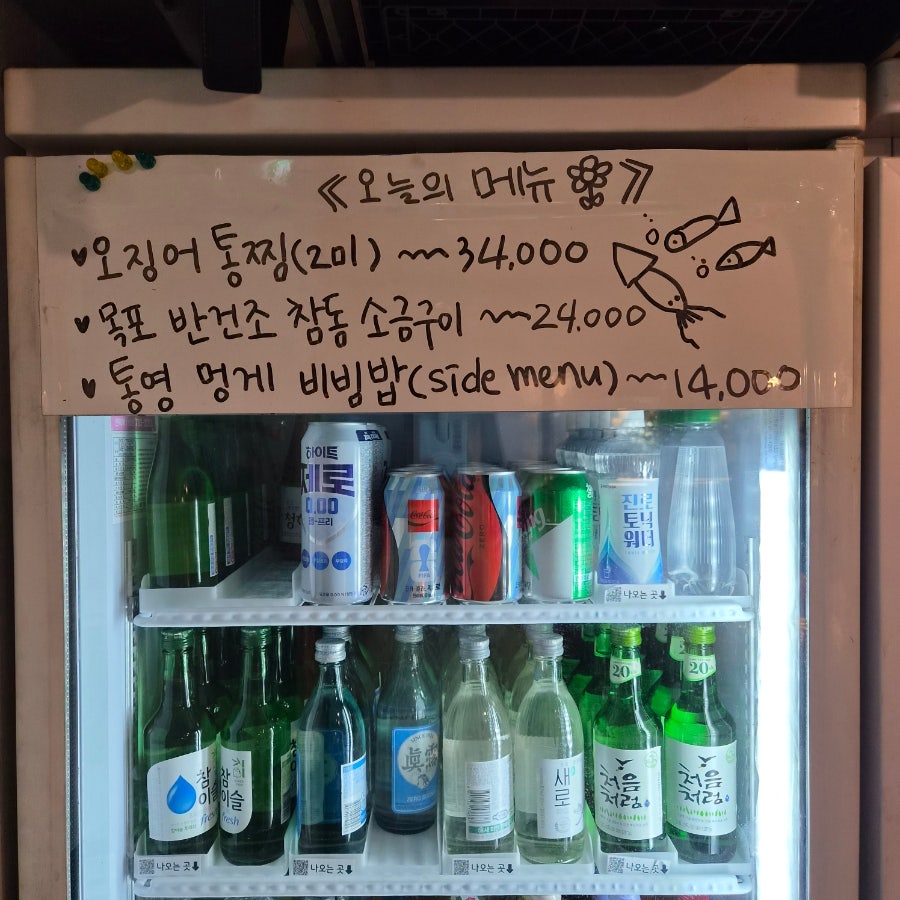 《오늘의 메뉴》
오징어 통찜(2미) ~ 34,000
목포 반건조 참돔 소금구이 ~ 24.000
통영 멍게 비빔밥(side menu) ~ 14,000
하이트
제로
0.00
Coca-Cola
ZERO
진로
토닉
워터
나오는 곳
20
20
참이슬
fresh
참이슬
fresh
새로
처음
처럼
처음
처럼
나오는 곳
나오는 곳
나오는 곳
나오는 곳